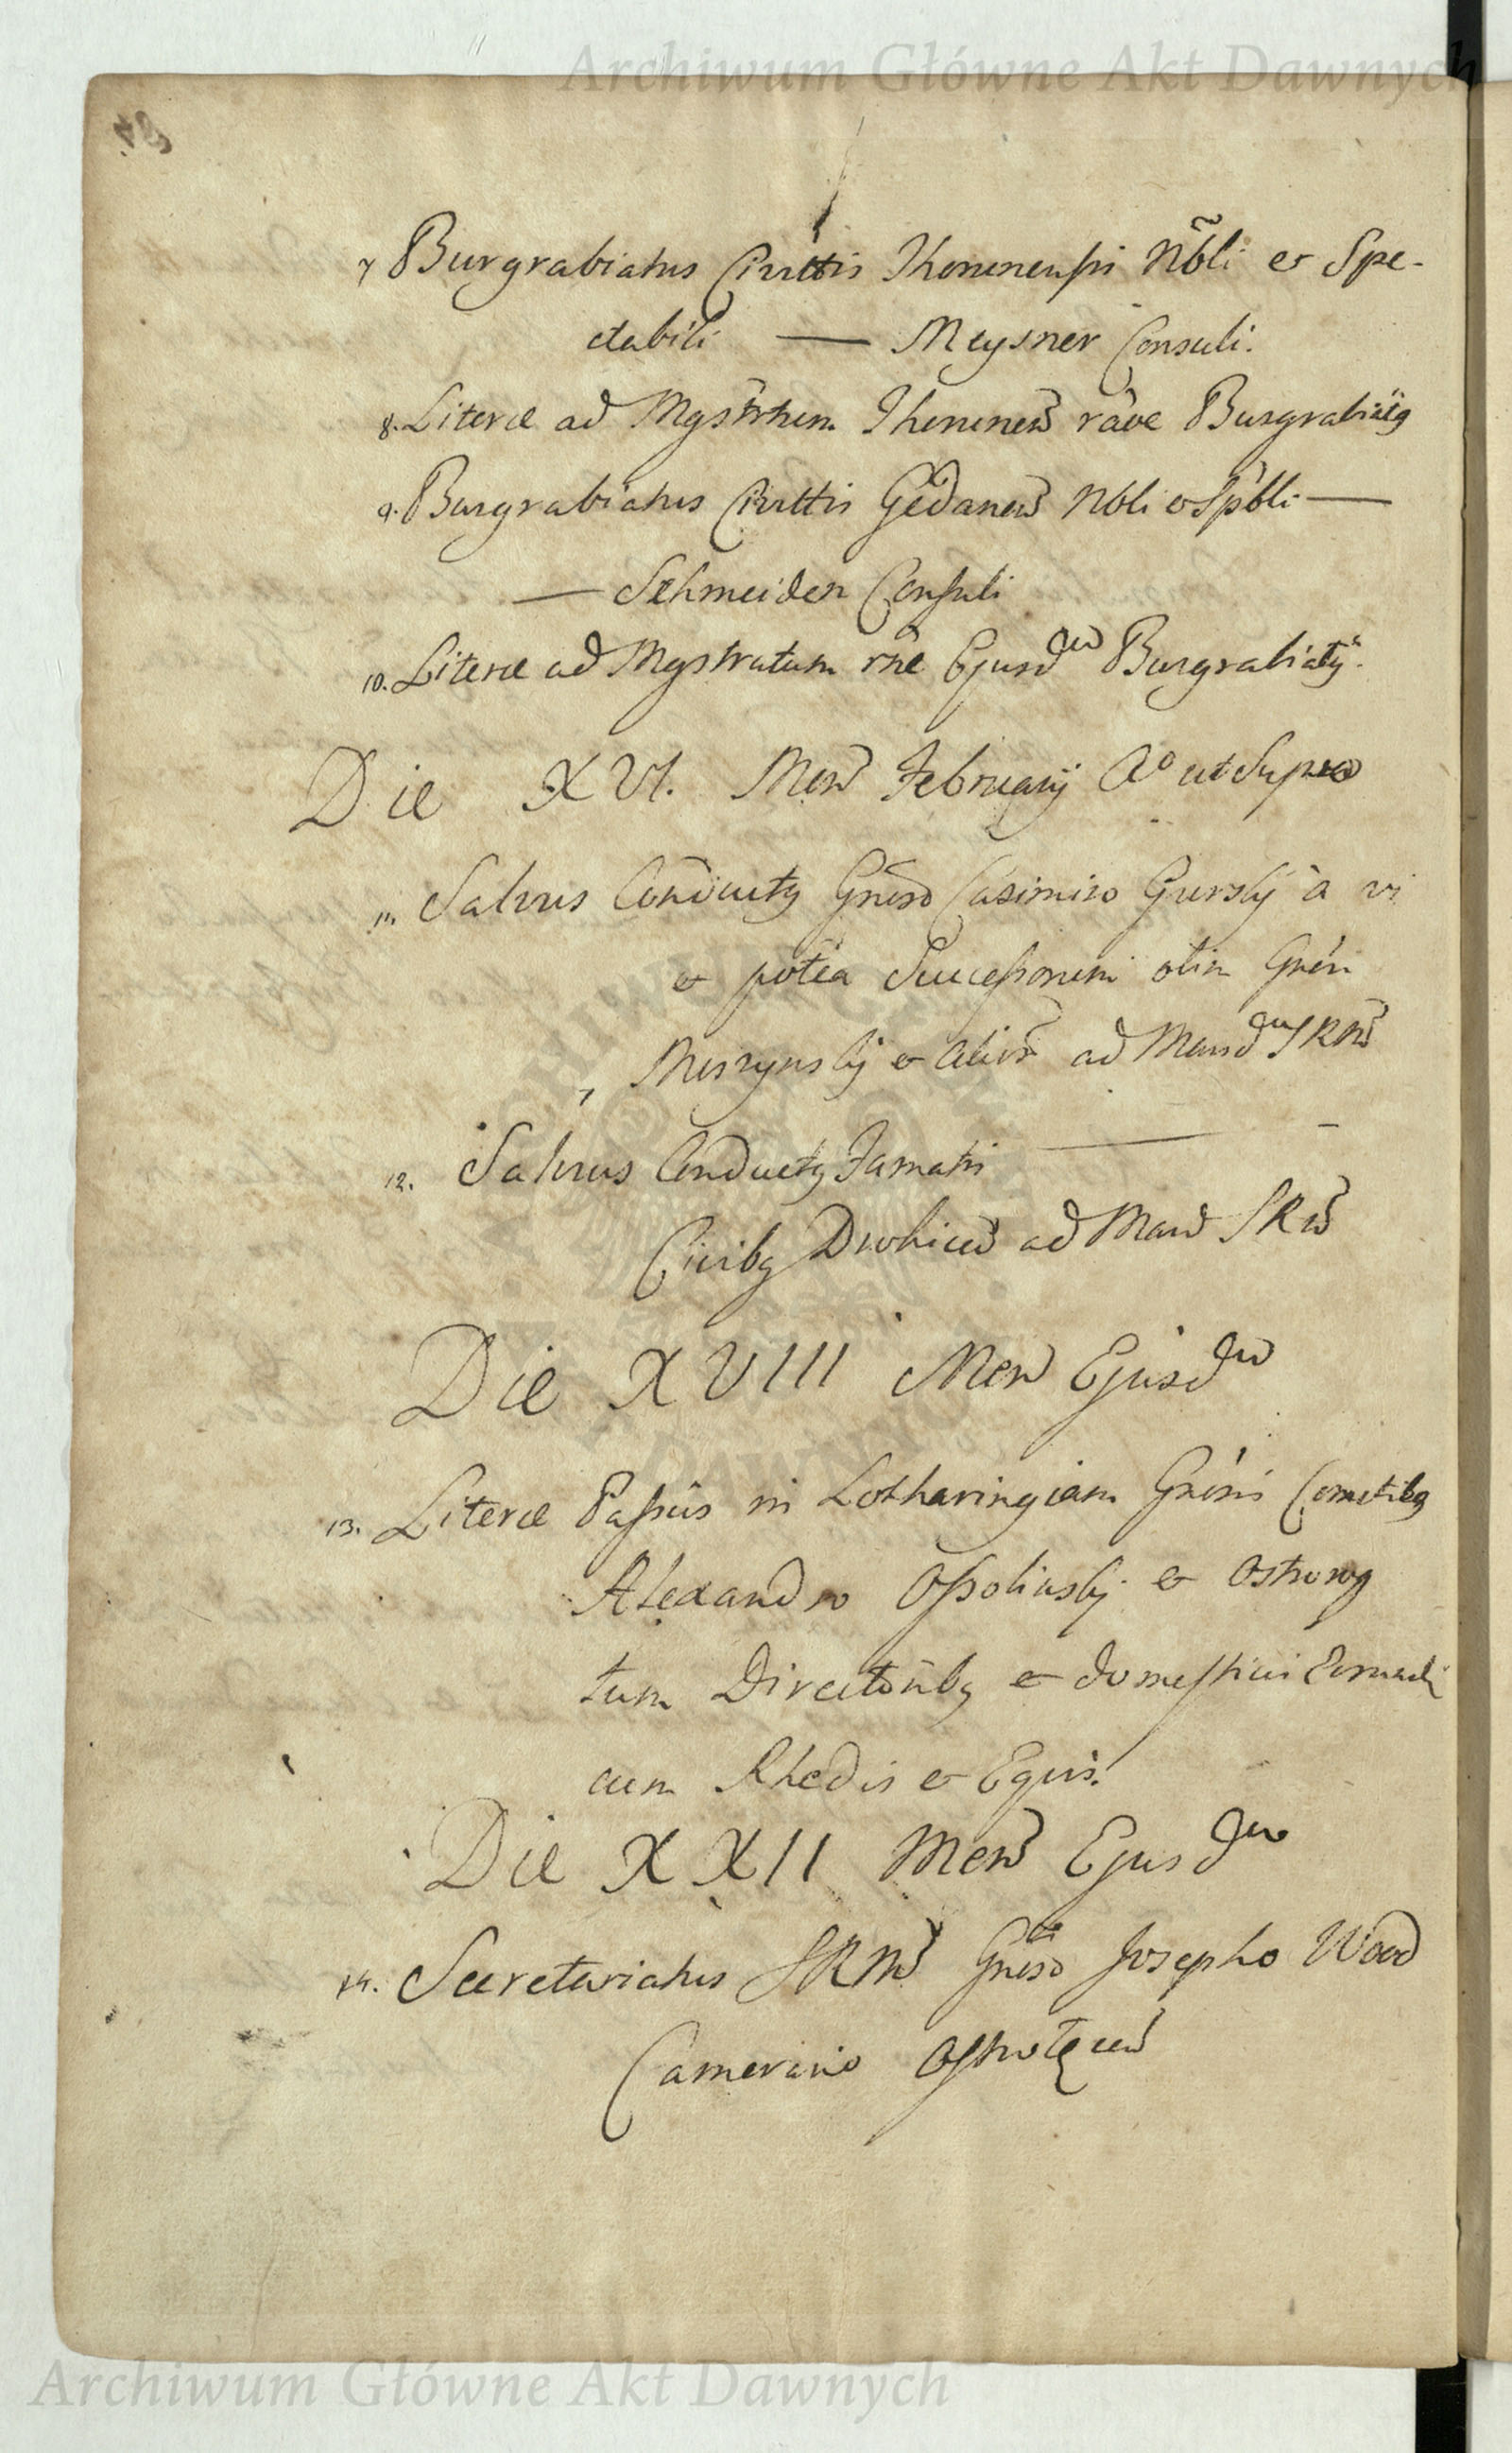 Archiwum Główne Akt Dawnych
7 Burgrabiatus Civittis Thorunensi Nobli et Spe-
ctabili — Meysner Consuli.
8. Literæ ad Mgstrtum Thorunens Burgrabiatg
9. Burgrabiatus Civttis Gedanens Nbli et Spbli —
— Schmeiden Consuli
10. Literæ ad Mgstratum rne Ejusdem Burgrabiatg.
Die XVI. Mens Februarij Ao ut Supra
11. Salvus Conductg Gneso Casimiro Gurskij à vi
et potia Successorum olim Gnesi
et alior ad Mand SRMs
12. Salvus Conductg Famatis —
Civibg Drohicens ad Mand SRMs
Die XVIII Mens Ejusdem
13. Literæ Passus in Lotharingiam Gnesis Comitibg
Alexandro Ossolinskij et Ostrorog
tum Directoribg et domesticis
cum Rhedis et Equis.
Die XXII Mens Ejusdem
14. Secretariatus SRMs Gneso Josepho Wood
Camerario Ostrołęcens
Archiwum Główne Akt Dawnych